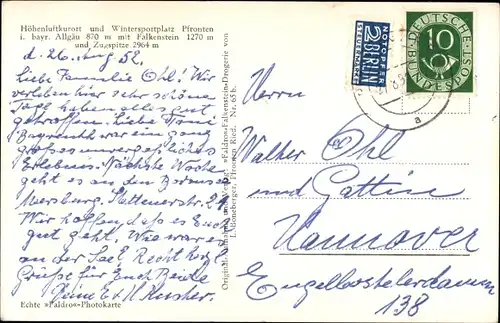 Höhenluftkurort und Wintersportplatz Pfronten
i. bayr. Allgäu 870 m mit Falkenstein 1270 m
und Zugspitze 2964 m
d. 26. Aug 52.
Liebe Familie Ohl! Wir
verleben hier sehr schöne
Tage haben alles gut
getroffen. Liebe
Bayreuth war ein ganz
großes unvergeßliches
Erlebnis. Nächste Woche
geht es an den Bodensee
Meersburg. 24
Wir hoffen, daß es Euch
gut geht. Wie war es
an der See? Recht herzl.
Grüße für Euch Beide
Echte »Faldros«-Photokarte
Original-Aufnahme und Verlag: »Faldros«-Falkenstein-Drogerie von
Pfronten Ried. Nr. 65 b.
NOTOPFER
2 BERLIN
STEUERMARKE
DEUTSCHE
BUNDESPOST
10
Herrn
Walter Ohl
und Gattin
Hannover
Engelbostelerdamm
138